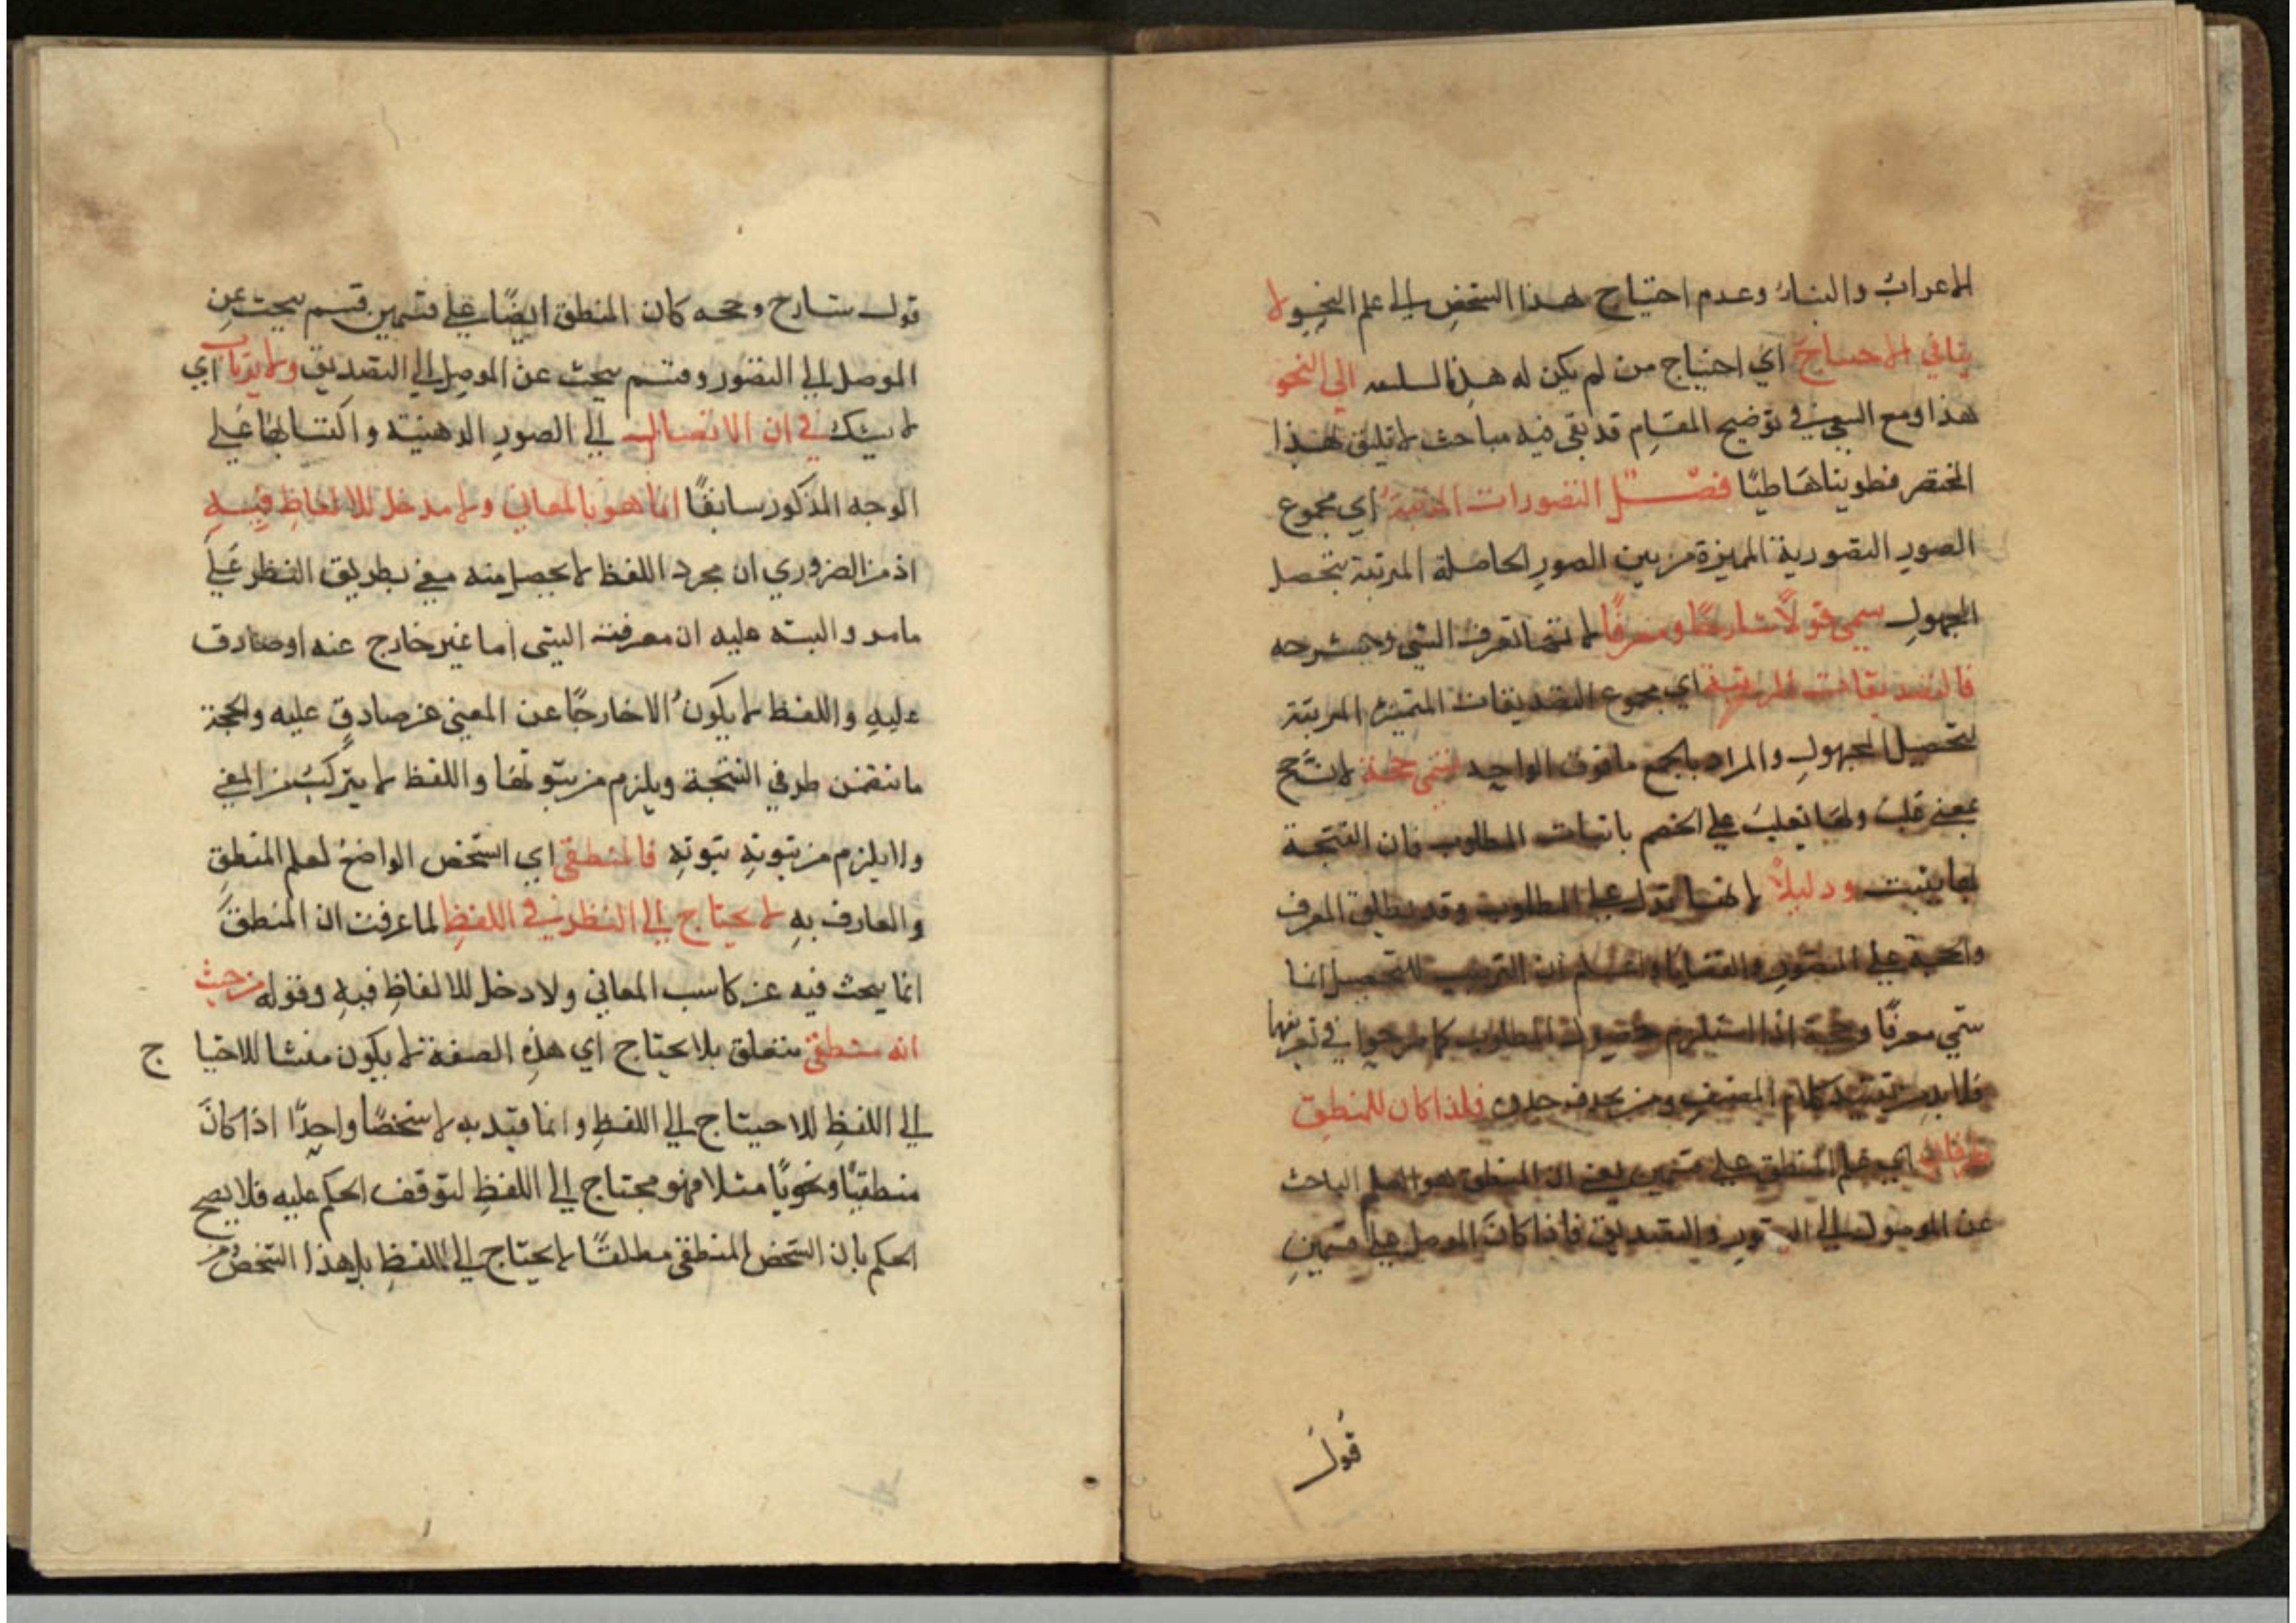 الاعراب والبناء وعدم احتياج هذا الشخص الى علم النحو لا
ينافي الاحتياج اي احتياج من لم يكن له هذه السليقه الى النحو
هذا ومع السعي في توضيح المقام قد بقي فيه مباحث لا تليق بهذا
المختصر فطويناها طيًا فصــل التصورات المرتبة اي مجموع
الصور التصورية المميزة من بين الصور الحاصلة المرتبة بتحصل
المجهول سمي قولًا شارحًا ومعرفًا لانها تعرف الشي وتشرحه
فالتصديقات المرتبة اي مجموع التصديقات المتميزة المرتبة
لتحصيل المجهول والمراد بالجمع ما فوق الواحد تسمى حجة لان حج
بمعنى غلب ولها تغلب على الخصم باثبات المطلوب فان النتجة
بها يثبت ودليلًا لانها تدل على المطلوب وقد يطلق المعرف
والحجة على التصور والقضايا واعلم ان الترتيب للتحصيل انما
سمي معرفًا وحجة اذا استلزم حصول المطلوب كما صرحوا في تعريفهما
فلا بد من تقييد كلام المصنف فلذا كان للمنطق
طرفان اي علم المنطق على قسمين يعني ان المنطق هو العلم الباحث
عن الموصول الى التصور والتصديق فاذا كان الموصل على قسمين
قول
قول شارح وحجه كان المنطق ايضًا على قسمين قسم يبحث عن
الموصل الى التصور وقسم يبحث عن الموصل الى التصديق ولا يرتاب اي
لا يشك في ان الانتقال الى الصور الذهنية واكتسابها على
الوجه المذكور سابقًا انما هو بالمعاني ولا مدخل للالفاظ فيه
اذ من الضروري ان مجرد اللفظ لا يحصل منه معنى بطريق النظر على
ما مر والبته عليه ان معرفته الشي اما غير خارج عنه او صادق
عليه واللفظ لا يكون الا خارجًا عن المعنى غير صادق عليه والحجة
ما تتضمن طرفي النتجة ويلزم من ثبوتها واللفظ لا يتركب من المعنى
ولا يلزم من ثبوته ثبوته فالمنطقي اي الشخص الواضح لعلم المنطق
والعارف به لا يحتاج الى النظر في اللفظ لما عرفت ان المنطق
انما يبحث فيه عن كاسب المعاني ولا دخل للالفاظ فيه وقوله من حيث
انه منطقي متعلق بلا يحتاج اي هذه الصفة لا يكون منشا للاحتيا ج
الى اللفظ للاحتياج الى اللفظ وانما قيد به لا شخصًا واحدًا اذا كان
منطقيًا ونحويًا مثلا فهو محتاج الى اللفظ لتوقف الحكم عليه فلا يصح
الحكم بان الشخص المنطقي مطلقًا لا يحتاج الى اللفظ بل هذا الشخص من